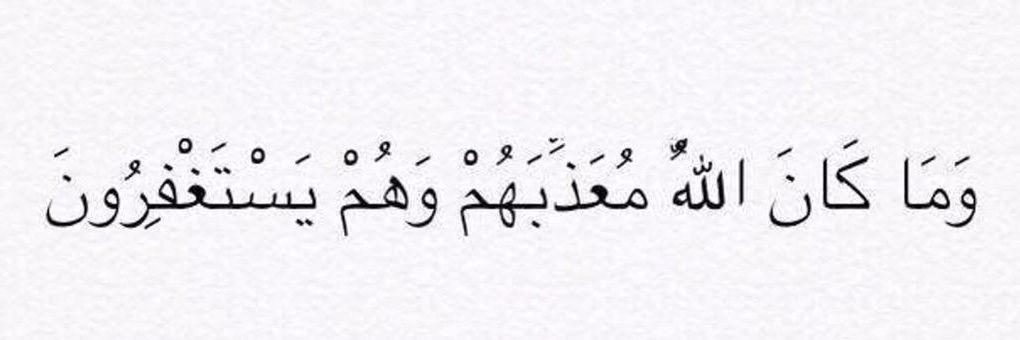 وَمَا كَانَ اللهُ مُعَذَِّبَهُمْ وَهُمْ يَسْتَغْفِرُونَ